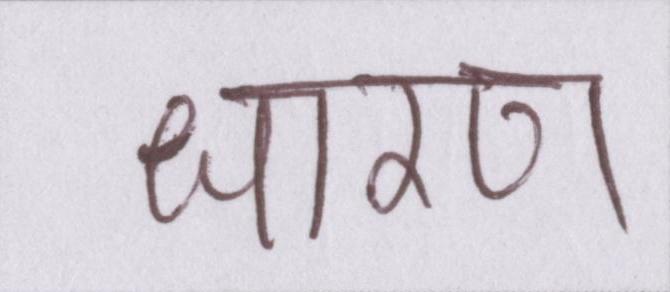 धारण